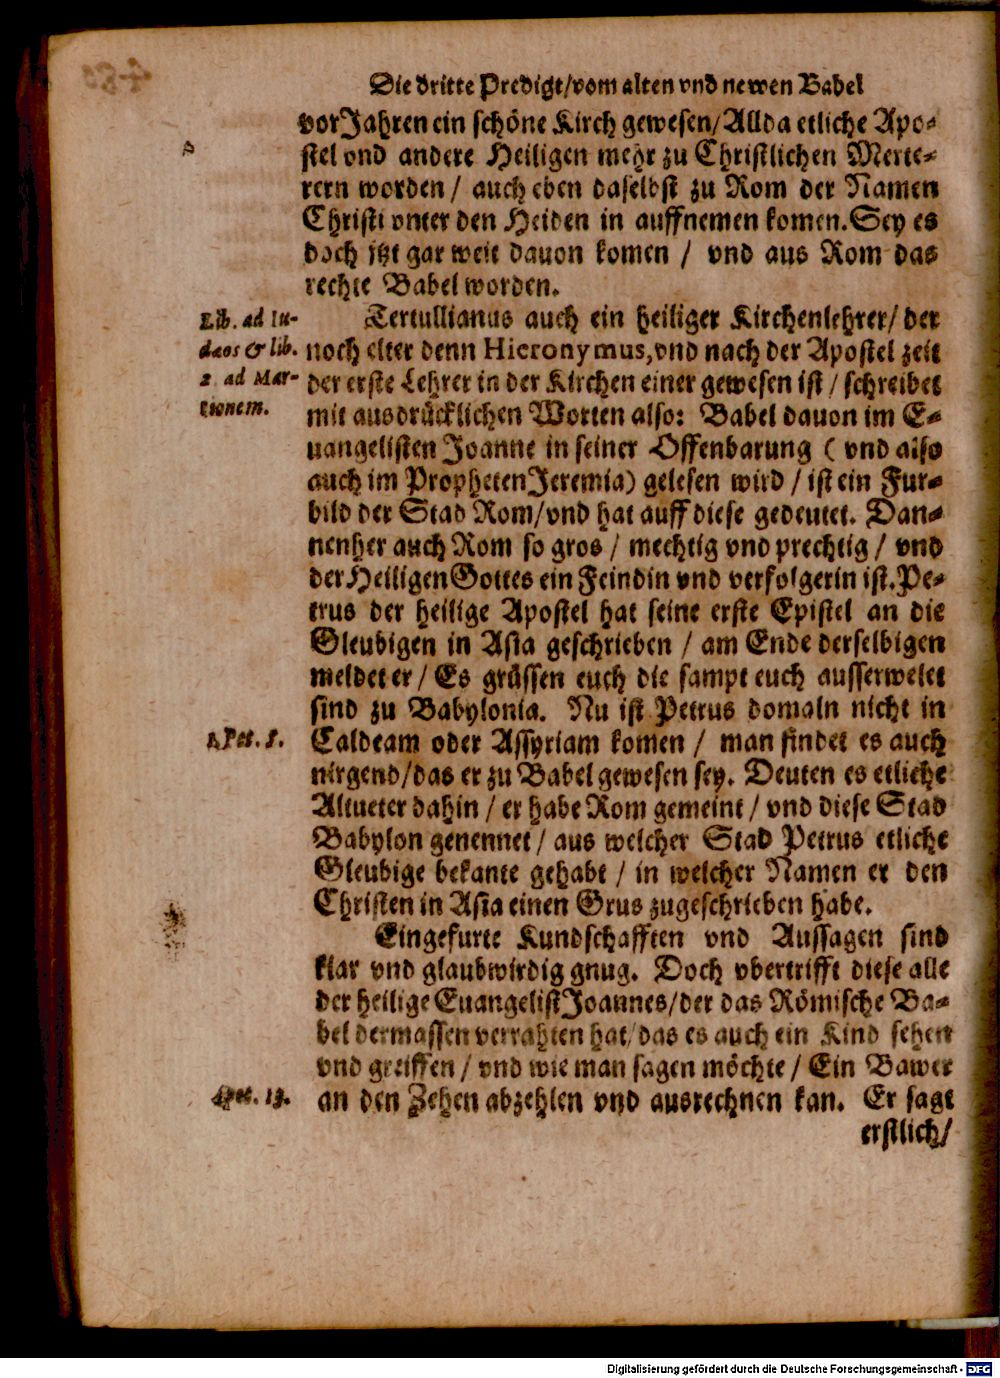 Die dritte Predigt/vom alten vnd newen Babel
vor Jahren ein schöne Kirch gewesen/Allda etliche Apo-
stel vnd andere Heiligen mehr zu Christlichen Merte-
rern worden / auch eben daselbst zu Rom der Namen
Christi vnter den Heiden in auffnemen komen. Sey es
doch jtzt gar weit dauon komen / vnd aus Rom das
rechte Babel worden.
Lib. ad Iu-
daeos & lib.
2 ad Mar-
cionem.
Tertullianus auch ein heiliger Kirchenlehrer/ der
noch elter denn Hieronymus, vnd nach der Apostel zeit
der erste Lehrer in der Kirchen einer gewesen ist / schreibet
mit ausdrücklichen Worten also: Babel dauon im E-
uangelisten Joanne in seiner Offenbarung ( vnd also
auch im Propheten Jeremia) gelesen wird / ist ein Fur-
bild der Stad Rom/vnd hat auff diese gedeutet. Dan-
nenher auch Rom so gros / mechtig vnd prechtig / vnd
der Heiligen Gottes ein Feindin vnd verfolgerin ist. Pe-
trus der heilige Apostel hat seine erste Epistel an die
Gleubigen in Asia geschrieben / am Ende derselbigen
meldet er / Es grüssen euch die sampt euch ausserwelet
sind zu Babylonia. Nu ist Petrus domaln nicht in
1. Pet. 5.
Caldeam oder Assyriam komen / man findet es auch
nirgend/das er zu Babel gewesen sey. Deuten es etliche
Altueter dahin / er habe Rom gemeint / vnd diese Stad
Babylon genennet / aus welcher Stad Petrus etliche
Gleubige bekante gehabt / in welcher Namen er den
Christen in Asia einen Grus zugeschrieben habe.
Eingefurte Kundschafften vnd Aussagen sind
klar vnd glaubwirdig gnug. Doch vbertrifft diese alle
der heilige Euangelist Joannes/der das Römische Ba-
bel dermassen verrahten hat/das es auch ein Kind sehen
vnd greiffen / vnd wie man sagen möchte / Ein Bawer
Apoc. 13.
an den Zehen abzehlen vnd ausrechnen kan. Er sagt
erstlich/
Digitalisierung gefördert durch die Deutsche Forschungsgemeinschaft - DFG